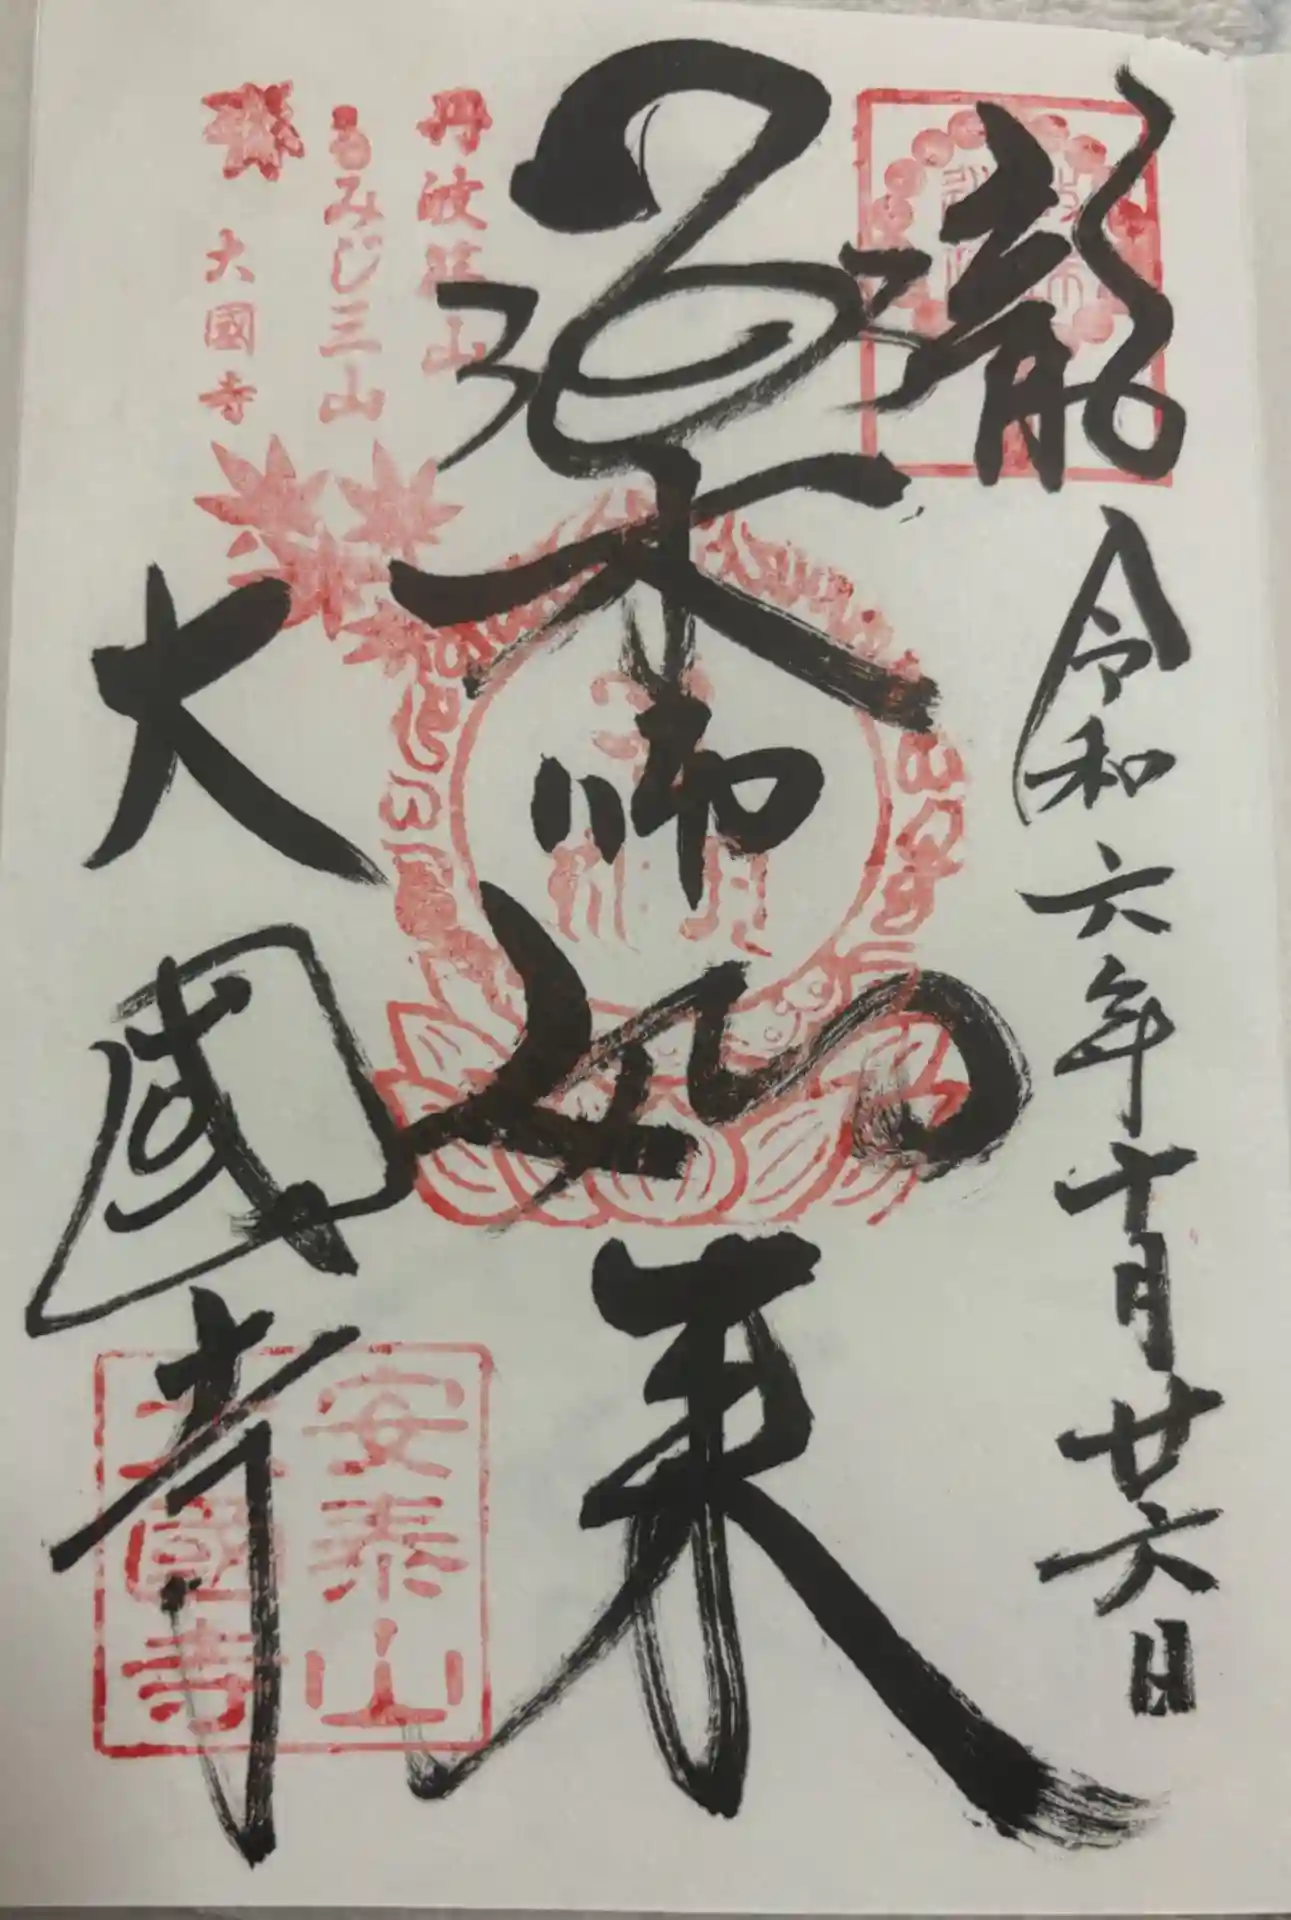 令和六年十月廿六日
龍
薬師如来
丹波篠山
もみじ三山
大國寺
大國寺
安泰山
大國寺